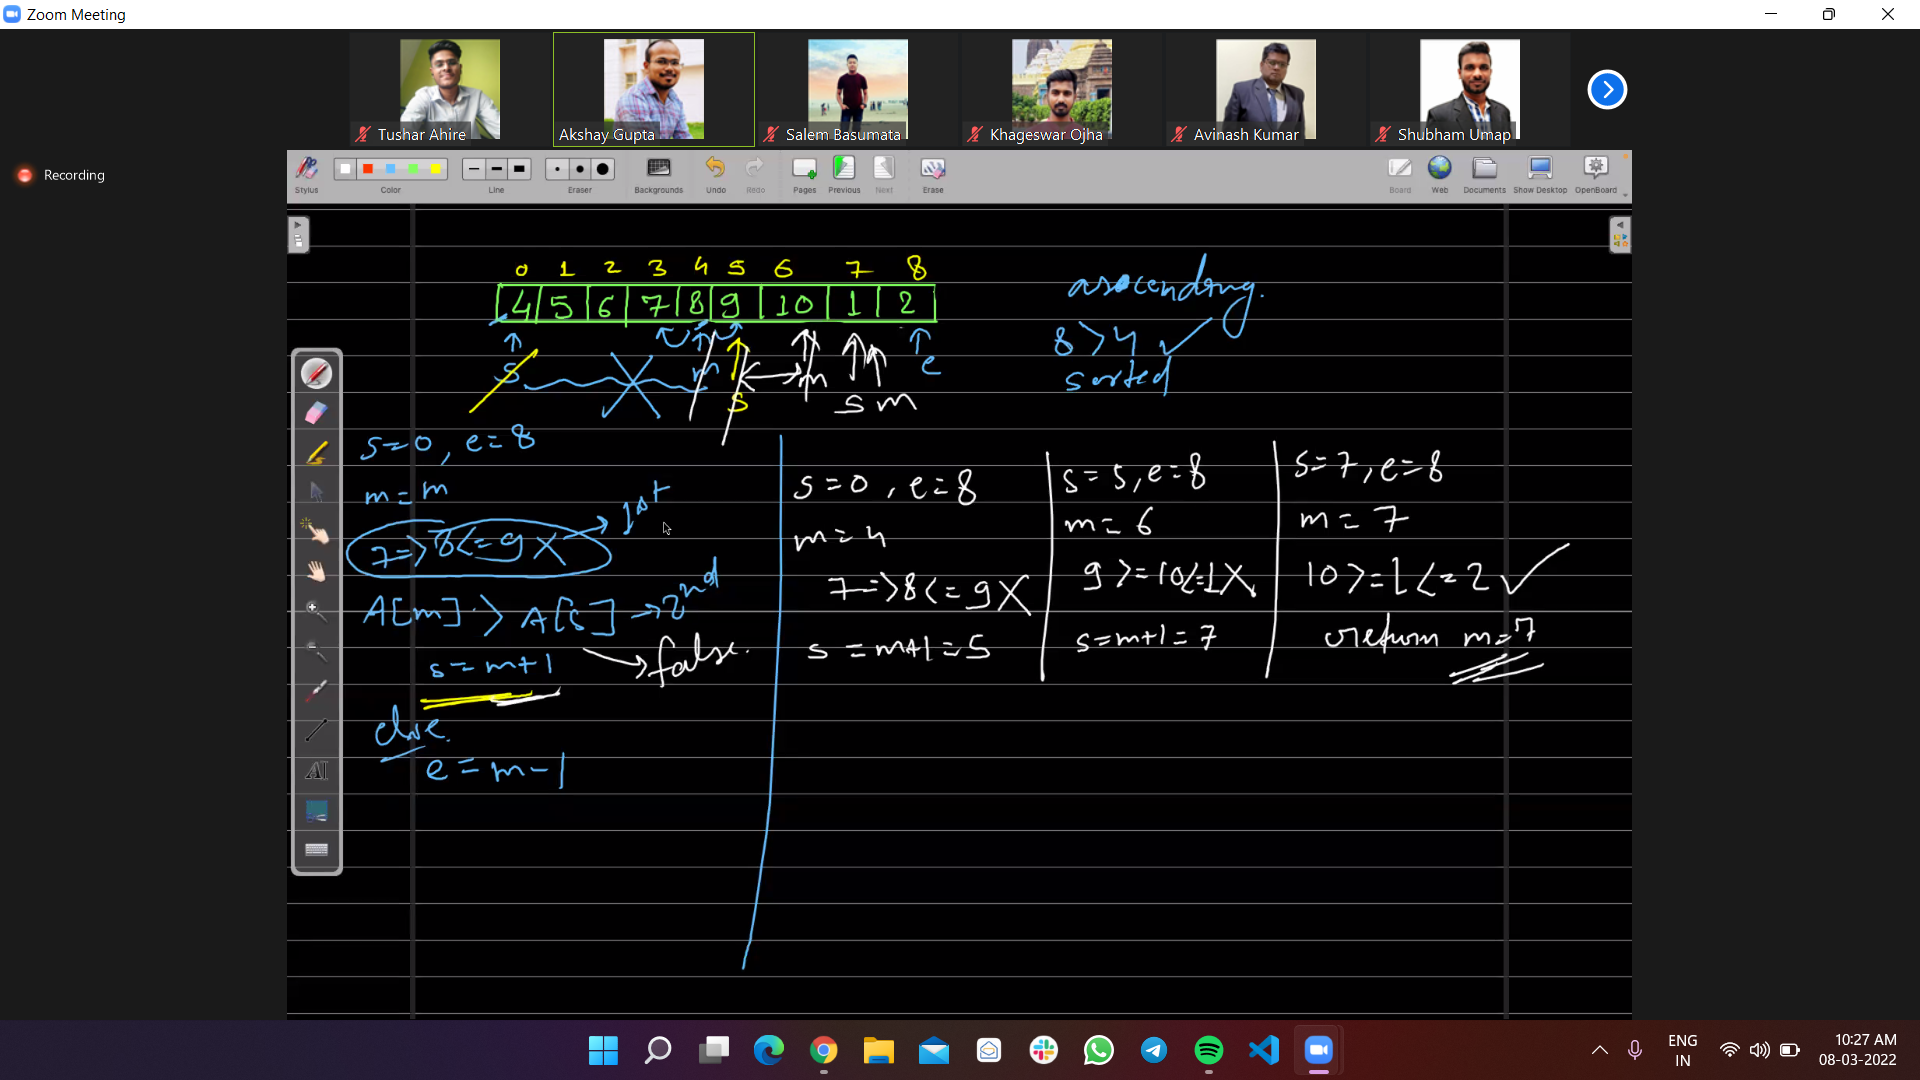 Zoom Meeting
Tushar Ahire
Akshay Gupta
Salem Basumata
Khageswar Ojha
Avinash Kumar
Shubham Umap
Recording
Stylus
Color
Line
Eraser
Backgrounds
Undo
Redo
Pages
Previous
Next
Erase
Board
Web
Documents
Show Desktop
OpenBoard
0 1 2 3 4 5 6 7 8
4 5 6 7 8 9 10 1 2
s m s m s m e
ascending.
8 > 4 ✓
sorted
s=0, e=8
m = m
7=>8<=9 X → 1st
A[m] > A[s] → 2nd
s = m+1 → false.
else
e = m-1
s=0, e=8
m=4
7=>8<=9 X
s = m+1 = 5
s=5, e=8
m=6
9>=10<=1 X
s=m+1=7
s=7, e=8
m=7
10>=1<=2 ✓
return m=7
AI
ENG
IN
10:27 AM
08-03-2022